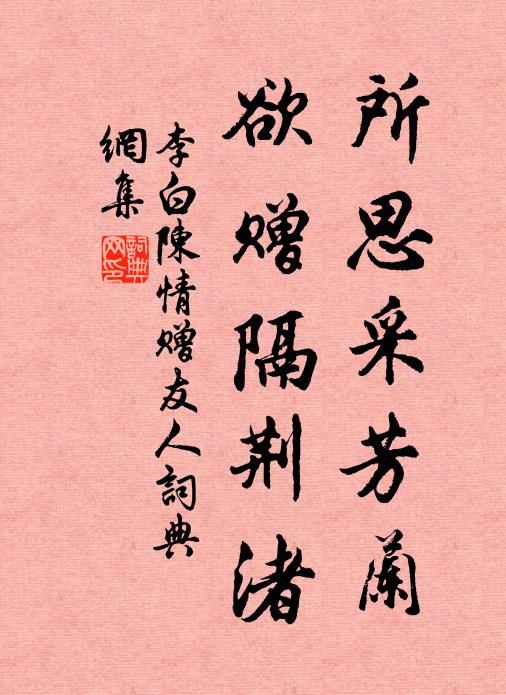 所思采芳蘭
欲赠隔荆渚
李白陳情赠友人詞典
網集
詞典
网印